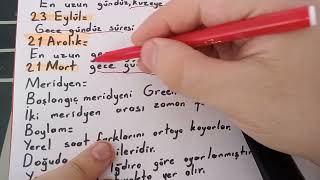 En uzun gündüz, kuzeye
23 Eylül=
Gece gündüz süresi
21 Aralık=
En uzun gec
21 Mart gece gü
Meridyen:
Başlangıç meridyeni Green
İki meridyen arası zaman
Boylam:
Yerel saat farklarını ortaya koyarlar.
Doğuda ileridir.
Iğdıra göre ayarlanmıştı
yer olır.